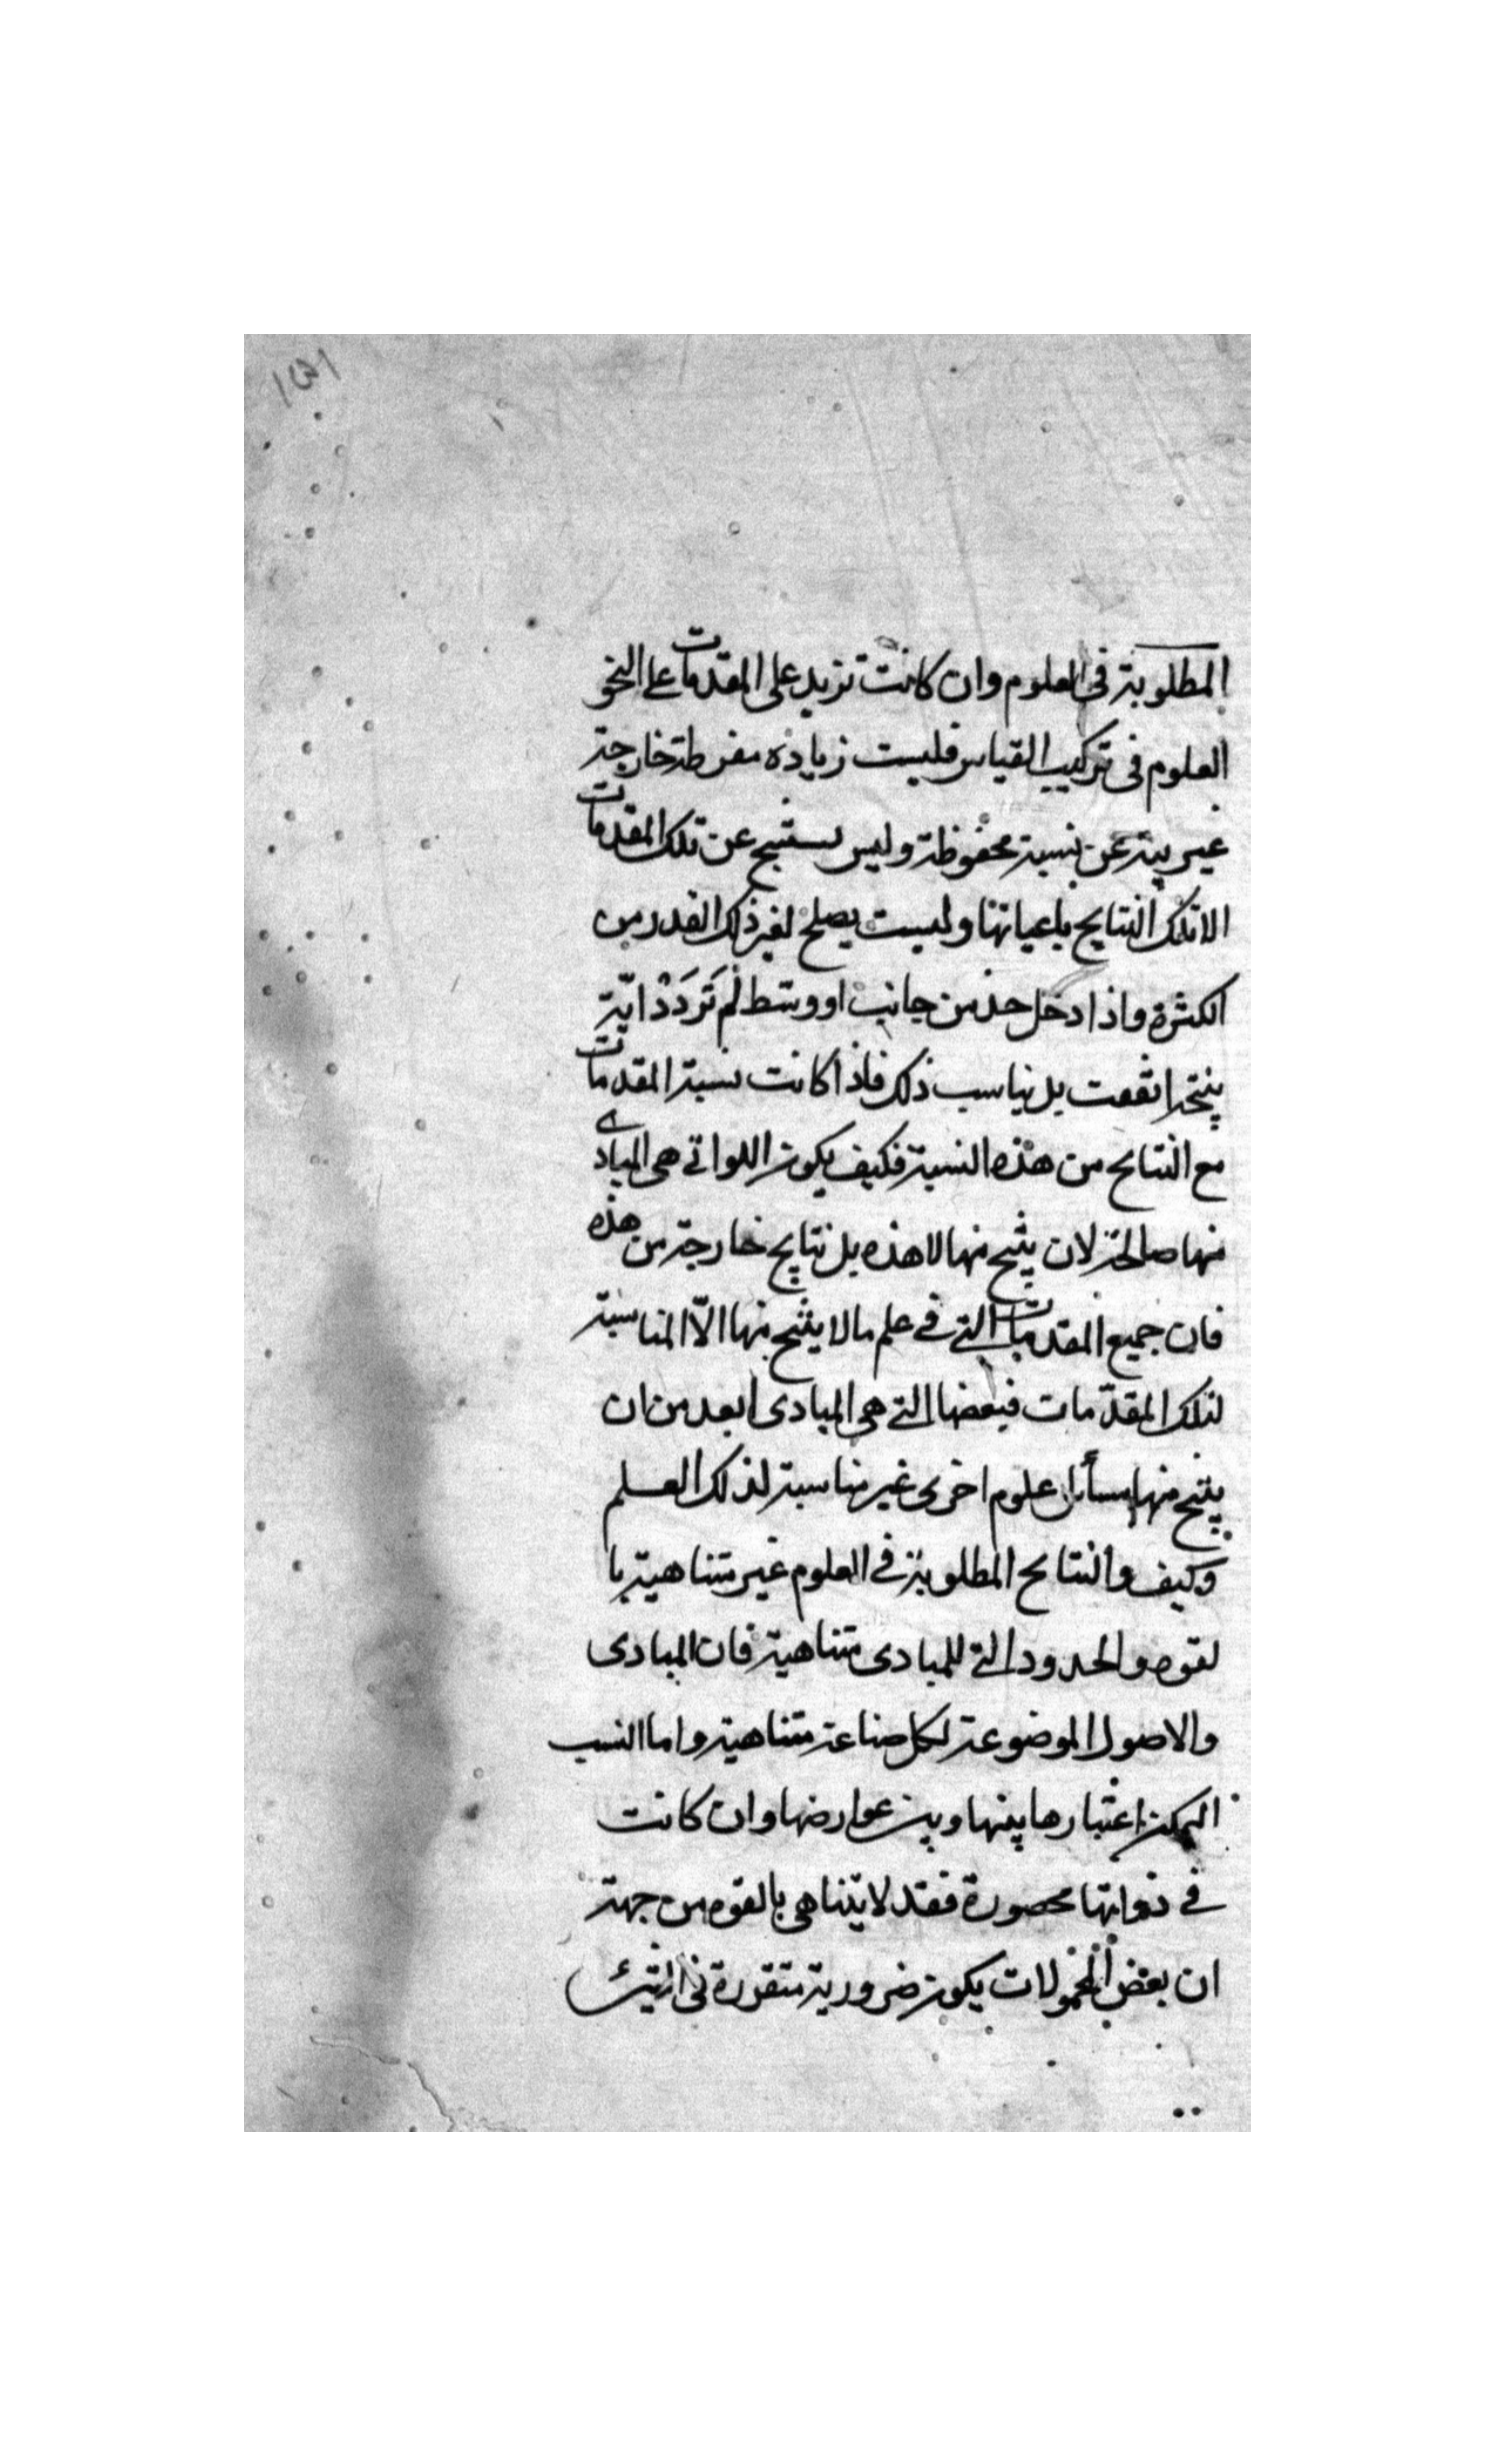 المطلوبة فى العلوم وان كانت تزيد على المقدمات على النحو
العلوم فى تركيب القياس فليست زياده مفرطة خارجة
غير بينة عن نسبة محفوظة وليس يستنتج عن تلك المقدمات
الا تلك النتايج باعيانها وليست يصلح لغير ذلك القدر من
الكثرة واذا دخل حد من جانب او وسط لم تَرَدَدْ اية
نتيجة اتفقت بل يناسب ذلك فاذا كانت نسبة المقدمات
مع النتايج من هذه النسبة فكيف يكون اللواتى هى المبادى
منها صالحة لان ينتج منها لا هذه بل نتايج خارجة من هذه
فان جميع المقدمات التى فى علم ما لا ينتج منها الّا المناسبة
لتلك المقدّمات فبعضها التى هى المبادى ابعد من ان
ينتج منها مسأئل علوم اخرى غير مناسبة لذلك العلم
وكيف والنتايح المطلوبة فى العلوم غير متناهية با
لقوه والحدود التى للمبادى متناهية فان المبادى
والاصول الموضوعة لكل صناعة متناهية واما النسب
الممكن اعتبارها بينها وبين عوارضها وان كانت
فى ذواتها محصورة فقد لا يتناهى بالقوه من جهة
ان بعض المحمولات يكون ضرورية متقررة فى